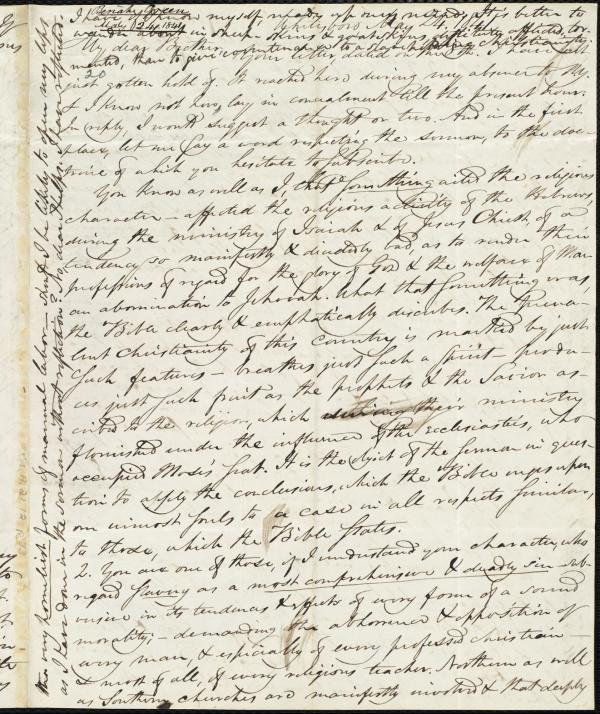 I have
myself ready
It is better to
wander about in sheep-skins & goat-skins, afflicted, tor-
mented, than to give countenance to a slaveholding Christianity
Beriah Green
My dear Brother,
Your letter dated
I have just
20
just gotten hold of. It reached here during my absence to
& I know not how, lay in concealment till the present hour.
In reply, I would suggest a thought or two. And in the first
place, let me say a word respecting the sermon, to the doc-
trine of which you hesitate to subscribe.
You know as well as I, that something in the religious
character — affected the religious activity of the Hebrews,
during the ministry of Isaiah & of Jesus Christ, of a
tendency so manifestly & decidedly bad, as to render their
professions of regard for the glory of God & the welfare of Man
an abomination to Jehovah. What that something was,
the Bible clearly & emphatically describes. The preva-
lent Christianity of this country is marked by just
such features — breathes just such a spirit — produ-
ces just such fruit as the prophets & the Savior as-
cribed to the religion, which their ministry
flourished under the influence of the ecclesiastics, who
occupied Moses's seat. It is the object of the sermon in ques-
tion to apply the conclusions, which the Bible urges upon
our inmost souls to a case in all respects similar,
to those, which the Bible states.
2. You are one of those, if I understand your character, who
regard slavery as a most comprehensive & deadly sin — sub-
versive in its tendencies & effects of every form of a sound
morality; — demanding the abhorrence & opposition of
every man, & especially of every professed Christian —
& most of all, of every religious teacher. Northern as well
as Southern churches are manifestly involved & that deeply
the very homliest forms of manual labor — shall I be likely to open my lips
as I have done in the sermon without reflection? No, dear brother. I have suffered